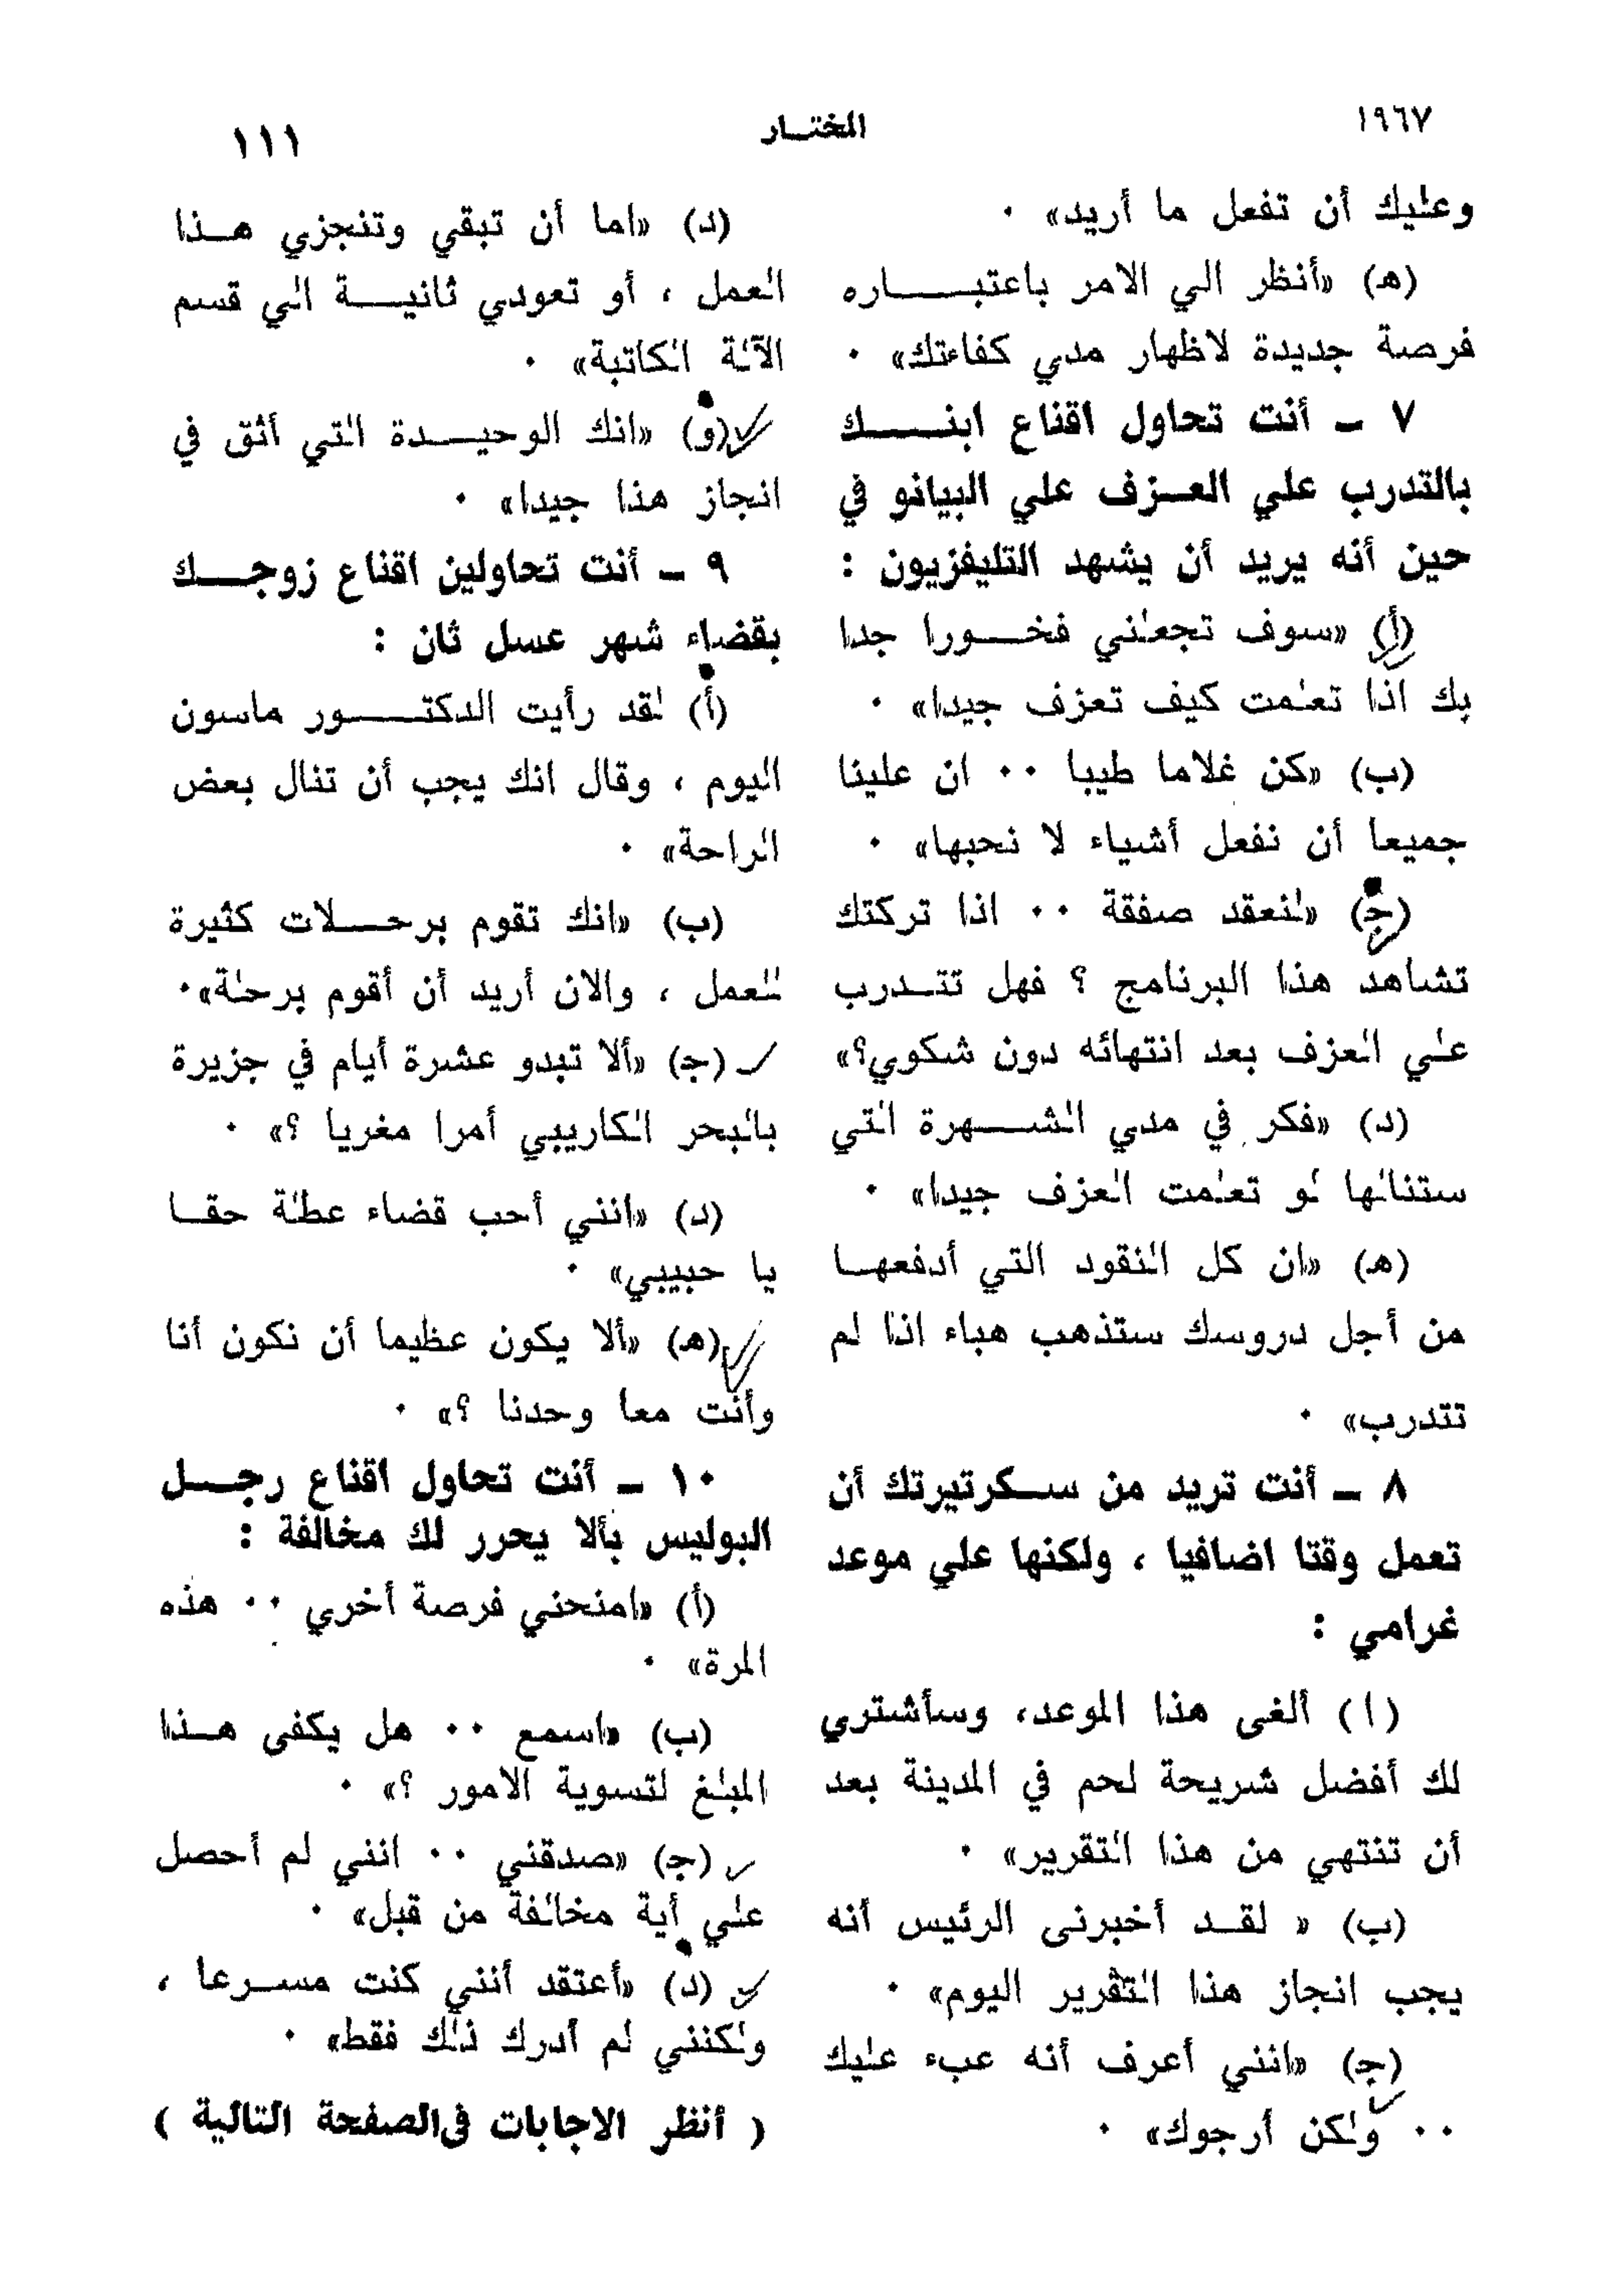 ١٩٦٧
المختار
١١١
وعليك أن تفعل ما أريد» ٠
(هـ) «أنظر الي الامر باعتباره
فرصة جديدة لاظهار مدي كفاءتك» ٠
٧ ـ أنت تحاول اقناع ابنك
بالتدرب علي العزف علي البيانو في
حين أنه يريد أن يشهد التليفزيون :
(أ) «سوف تجعلني فخورا جدا
بك اذا تعلمت كيف تعزف جيدا» ٠
(ب) «كن غلاما طيبا ٠٠ ان علينا
جميعا أن نفعل أشياء لا نحبها» ٠
(جـ) «لنعقد صفقة ٠٠ اذا تركتك
تشاهد هذا البرنامج ؟ فهل تتدرب
علي العزف بعد انتهائه دون شكوي؟»
(د) «فكر في مدي الشهرة التي
ستنالها لو تعلمت العزف جيدا» ٠
(هـ) «ان كل النقود التي أدفعها
من أجل دروسك ستذهب هباء اذا لم
تتدرب» ٠
٨ ـ أنت تريد من سكرتيرتك أن
تعمل وقتا اضافيا ، ولكنها علي موعد
غرامي :
(ا) ألغى هذا الموعد، وسأشتري
لك أفضل شريحة لحم في المدينة بعد
أن تنتهي من هذا التقرير» ٠
(ب) « لقد أخبرنى الرئيس أنه
يجب انجاز هذا التقرير اليوم» ٠
(جـ) «انني أعرف أنه عبء عليك
٠٠ ولكن أرجوك» ٠
(د) «اما أن تبقي وتنجزي هذا
العمل ، أو تعودي ثانية الي قسم
الآلة الكاتبة» ٠
(و) «انك الوحيدة التي أثق في
انجاز هذا جيدا» ٠
٩ ـ أنت تحاولين اقناع زوجك
بقضاء شهر عسل ثان :
(أ) لقد رأيت الدكتور ماسون
اليوم ، وقال انك يجب أن تنال بعض
الراحة» ٠
(ب) «انك تقوم برحلات كثيرة
للعمل ، والان أريد أن أقوم برحلة»٠
(جـ) «ألا تبدو عشرة أيام في جزيرة
بالبحر الكاريبي أمرا مغريا ؟» ٠
(د) «انني أحب قضاء عطلة حقا
يا حبيبي» ٠
(هـ) «ألا يكون عظيما أن نكون أنا
وأنت معا وحدنا ؟» ٠
١٠ ـ أنت تحاول اقناع رجل
البوليس بألا يحرر لك مخالفة :
(أ) «امنحني فرصة أخري ٠٠ هذه
المرة» ٠
(ب) «اسمع ٠٠ هل يكفى هذا
المبلغ لتسوية الامور ؟» ٠
(جـ) «صدقني ٠٠ انني لم أحصل
علي أية مخالفة من قبل» ٠
(د) «أعتقد أنني كنت مسرعا ،
ولكنني لم أدرك ذلك فقط» ٠
( أنظر الاجابات فى الصفحة التالية )